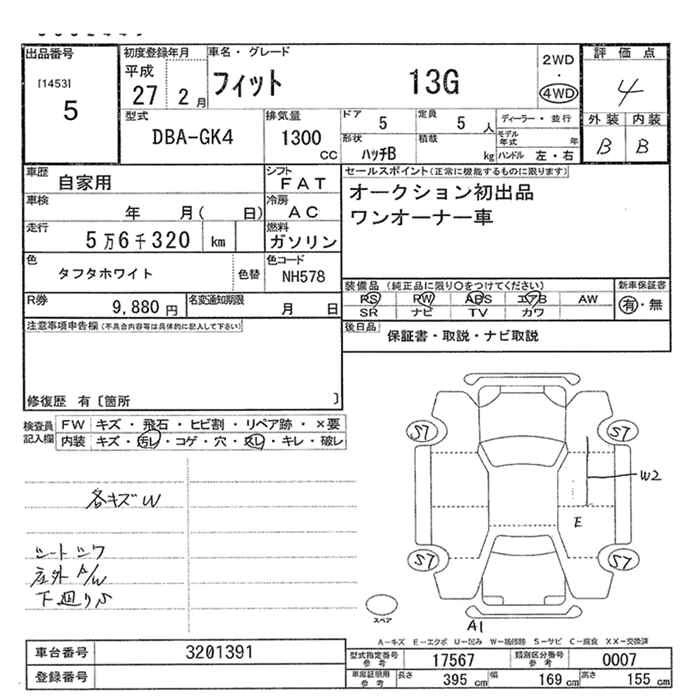 出品番号
[1453]
5
初度登録年月
平成
27 2 月
車名・グレード
フィット 13G
2WD
・
4WD
評価点
4
外装 内装
B B
型式
DBA-GK4
排気量
1300
CC
ドア
5
定員
5 人
形状
ハッチB
積載
kg
ディーラー・並行
モデル
年式 年
ハンドル 左・右
車歴
自家用
シフト
FAT
車検
年 月( 日)
冷房
AC
走行
5万6千320 km
燃料
ガソリン
色
タフタホワイト
色替
色コード
NH578
R券
9,880 円
名変通知期限
月 日
セールスポイント(正常に機能するものに限ります)
オークション初出品
ワンオーナー車
装備品(純正品に限り○をつけてください)
PS PW ABS エアB AW
SR ナビ TV カワ
新車保証書
有・無
後日品
保証書・取説・ナビ取説
注意事項申告欄(不具合内容等は具体的に記入して下さい)
修復歴 有〔箇所 〕
検査員
記入欄
FW キズ・飛石・ヒビ割・リペア跡・×要
内装 キズ・汚レ・コゲ・穴・スレ・キレ・破レ
各キズW
シートシワ
左外A/W
下廻りS
S7 S7
W2
E
S7 S7
スペア
A1
A-キズ E-エクボ U-凹み W-補修跡 S-サビ C-腐食 XX-交換済
車台番号
3201391
登録番号
型式指定番号
参考
17567
類別区分番号
参考
0007
車庫証明用
参考
長さ
395 cm
幅
169 cm
高さ
155 cm